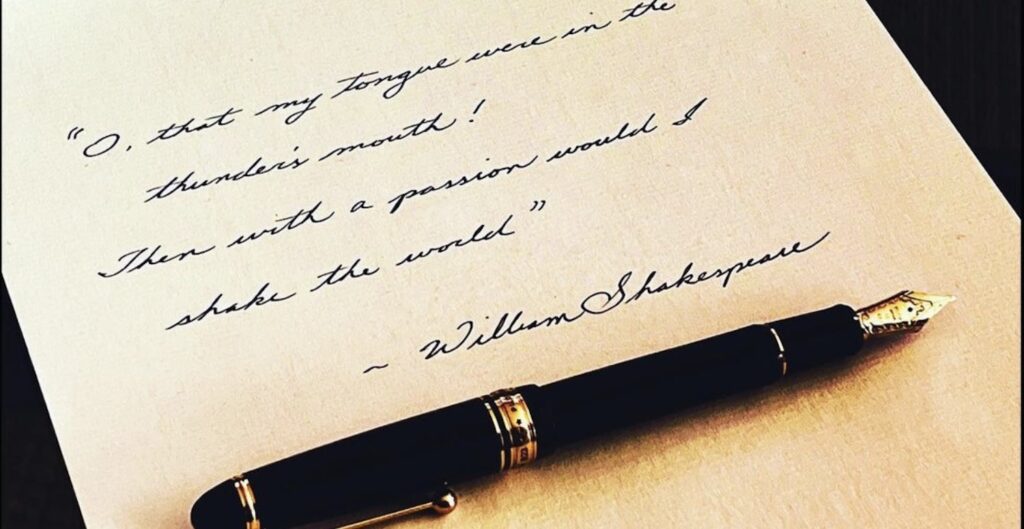 “O, that my tongue were in the
thunder's mouth!
Then with a passion would I
shake the world”
~ William Shakespeare